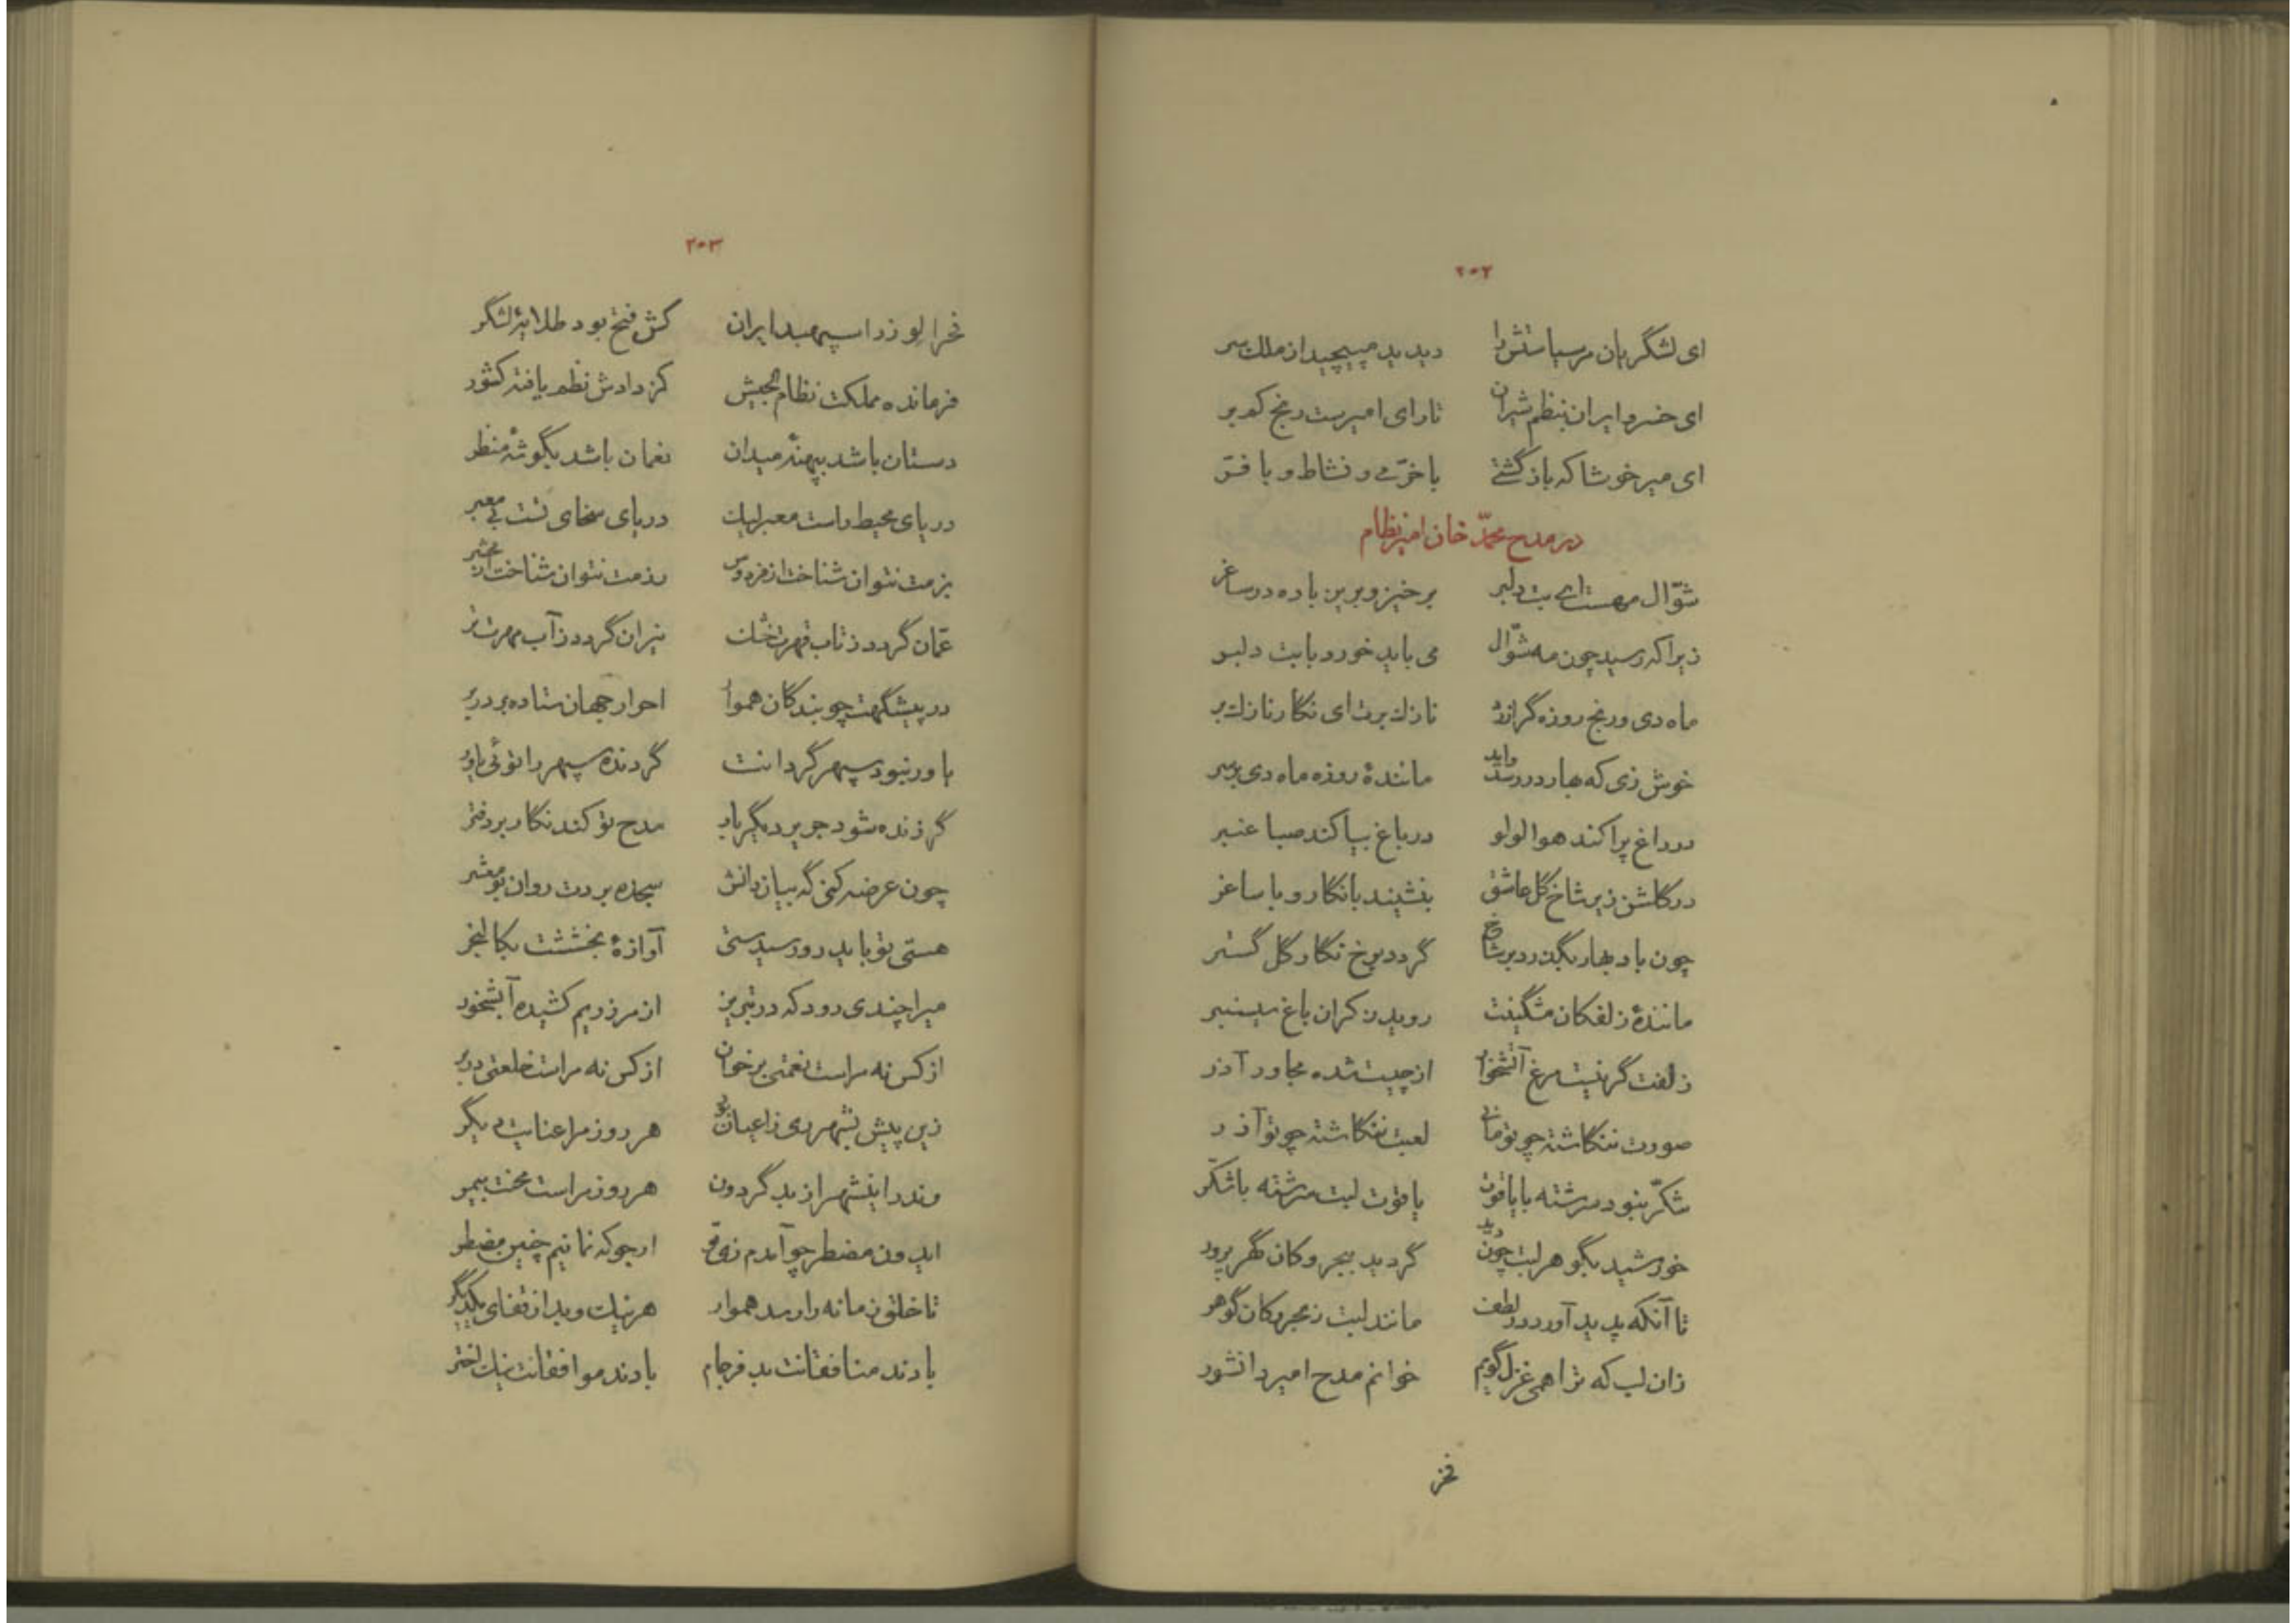 ۲۰۲
ای لشگریان مر سیاستش را دیدید مپیچید از ملک سر
ای خسرو ایران بنظم شیران تا رای امیرست رنج کم بر
ای میر خوشا که باز گشتی با خرّمی و نشاط و با فرّ
در مدح محمّد خان امیر نظام
شوّال مهست ای بت دلبر برخیز و بریز باده در ساغر
زیرا که رسید چون مه شوّال می باید خورد با بت دلبر
ماه دی و رنج روزه گر آزرد نازک برت ای نگار نازک بر
خوش زی که بهار در رسد و آید مانندهٔ روزه ماه دی بر سر
در راغ پراکند هوا لولو در باغ بپاکند صبا عنبر
در گلشن زیر شاخ گل عاشق بنشیند با نگار و با ساغر
چون باد بهار بگذرد بر شاخ گردد برخ نگار گل گستر
مانندهٔ زلفکان مشگینت روید ز کران باغ سیسنبر
زلفت گر نیست مرغ آتشخوار از چیست شده مجاور آذر
صورت ننگاشته چو تو مانی لعبت ننگاشته چو تو آذر
شکّر نبود سرشته با یاقوت یاقوت لبت سرشته با شکّر
خورشید بگوهر لبت چون دید گردید ببحر و کان گهر پرور
تا آنکه پدید آورد در لطف مانند لبت ز بحر و کان گوهر
زان لب که ترا همی غزل گویم خوانم مدح امیر دانشور
فخر
۲۰۳
فخر الوزرا سپهبد ایران کش فتح بود طلایهٔ لشگر
فرمانده مملکت نظام الجیش کز دادش نظم یافته کشور
دستان باشد بپهنهٔ میدان نعمان باشد بگوشهٔ منظر
دریای محیط راست معبر لیک دریای سخای تست بی معبر
بزمت نتوان شناخت از فردوس رزمت نتوان شناخت از محشر
عمّان گردد ز تاب قهرت خشک نیران گردد ز آب مهرت تر
در پیشگهت چو بندگان هموار احرار جهان ستاده بر در بر
یاور نبود سپهر گردانت گردنده سپهر را توئی یاور
گر زنده شود جریر دیگر بار مدح تو کند نگار بر دفتر
چون عرضه کنی گه بیان دانش سجده بردت روان بو معشر
هستی تو باید رود رسید ستی آوازهٔ بخششت بکالنجر
میرا چندی رود که در تبریز از مرز ریم کشیده آبشخور
از کس نه مراست نعمتی بر خوان از کس نه مراست خلعتی در بر
زین پیش بشهر ری ز اعیان بود هر روز مرا عنایت دیگر
وندر اینشهر از بد گردون هر روز مراست محنت بیمر
ایدون مضطر چو آمدم زی تو ارجو که نمانیم چنین مضطر
تا خلق زمانه را رسد هموار هر نیک و بد از قفای یکدیگر
بادند منافقانت بد فرجام بادند موافقانت نیک اختر